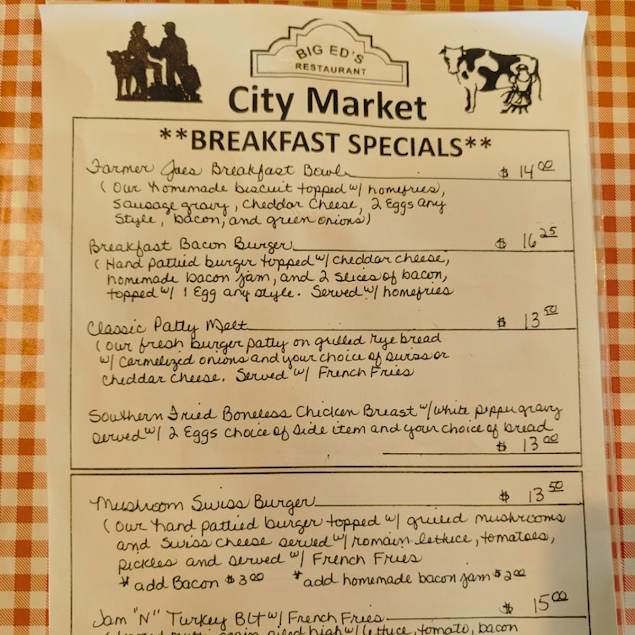 BIG ED'S
RESTAURANT
City Market
**BREAKFAST SPECIALS**
Farmer Joes Breakfast Bowl $ 14 00
(Our homemade biscuit topped w/ homefries,
Sausage gravy, Cheddar Cheese, 2 Eggs any
Style, bacon, and green onions)
Breakfast Bacon Burger $ 16 25
(Hand pattied burger topped w/ cheddar cheese,
homemade bacon jam, and 2 slices of bacon,
topped w/ 1 Egg any style. Served w/ homefries
Classic Patty Melt $ 13 50
(Our fresh burger patty on grilled rye bread
w/ carmelized onions and your choice of swiss or
cheddar cheese. Served w/ French Fries
Southern Fried Boneless Chicken Breast w/ white pepper gravy
served w/ 2 Eggs choice of side item and your choice of bread
$ 13 00
Mushroom Swiss Burger $ 13 50
(Our hand pattied burger topped w/ grilled mushrooms
and Swiss cheese served w/ romain lettuce, tomatoes,
pickles and served w/ French Fries
* add Bacon $3 00 * add homemade bacon jam $2 00
Jam "N" Turkey BLT w/ French Fries $ 15 00
piled high w/ lettuce, tomato, bacon